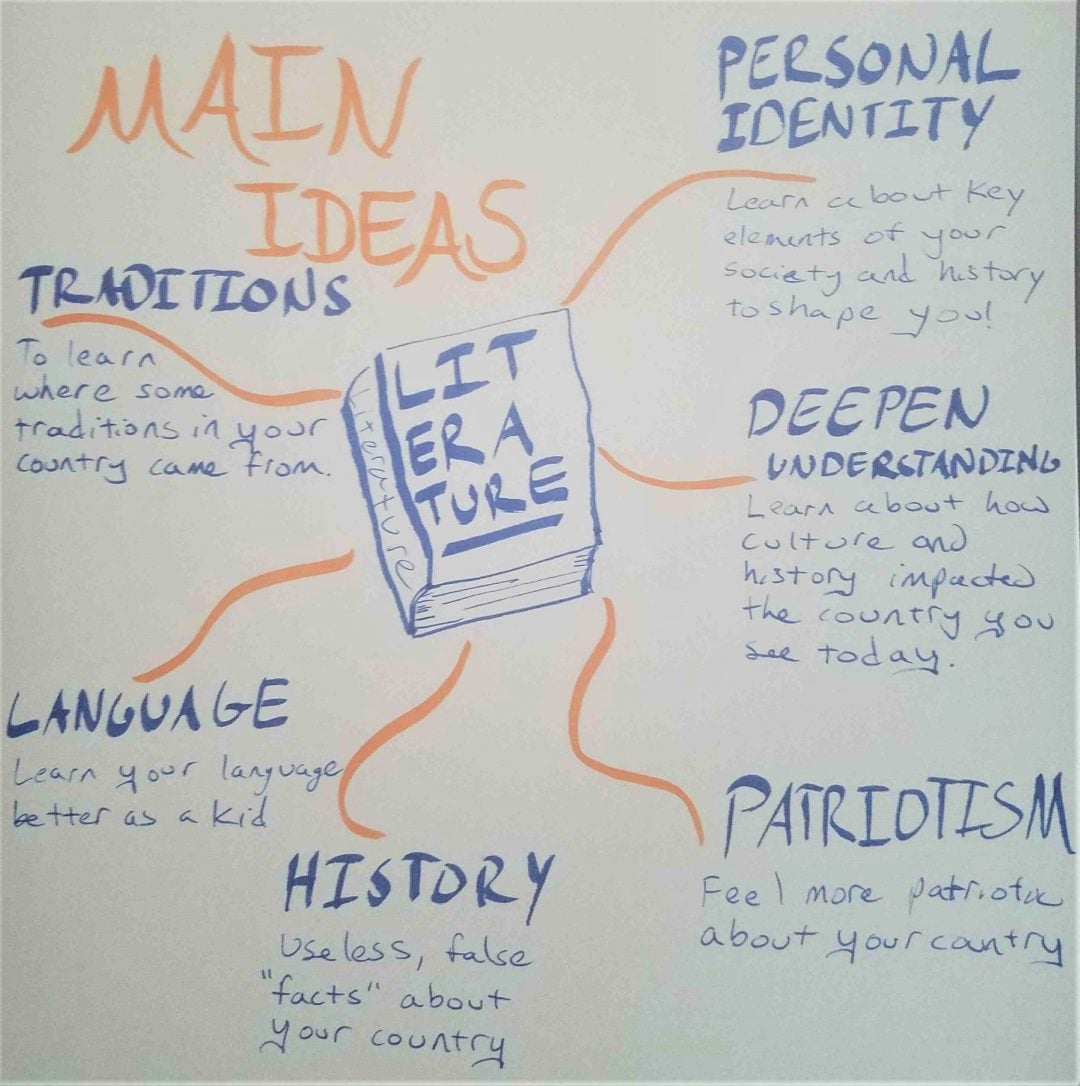 MAIN
IDEAS
PERSONAL
IDENTITY
Learn about key
elements of your
society and history
to shape you!
TRADITIONS
To learn
where some
traditions in your
country came from.
LIT
ERA
TURE
Literature
DEEPEN
UNDERSTANDING
Learn about how
culture and
history impacted
the country you
see today.
LANGUAGE
Learn your language
better as a kid
HISTORY
Useless, false
"facts" about
your country
PATRIOTISM
Feel more patriotic
about your country